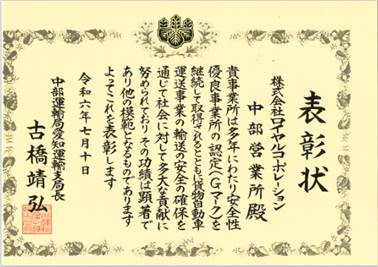 表彰状
株式会社ロイヤルコーポレーション
中部営業所殿
貴事業所は多年にわたり安全性
優良事業所の認定(Gマーク)を
継続して取得されるとともに貨物自動車
運送事業の輸送の安全の確保を
通じて社会に対して多大な貢献に
努められており その功績は顕著で
あり他の模範となるものであります
よってこれを表彰します
令和六年七月十日
中部運輸局愛知運輸支局長
古橋靖弘